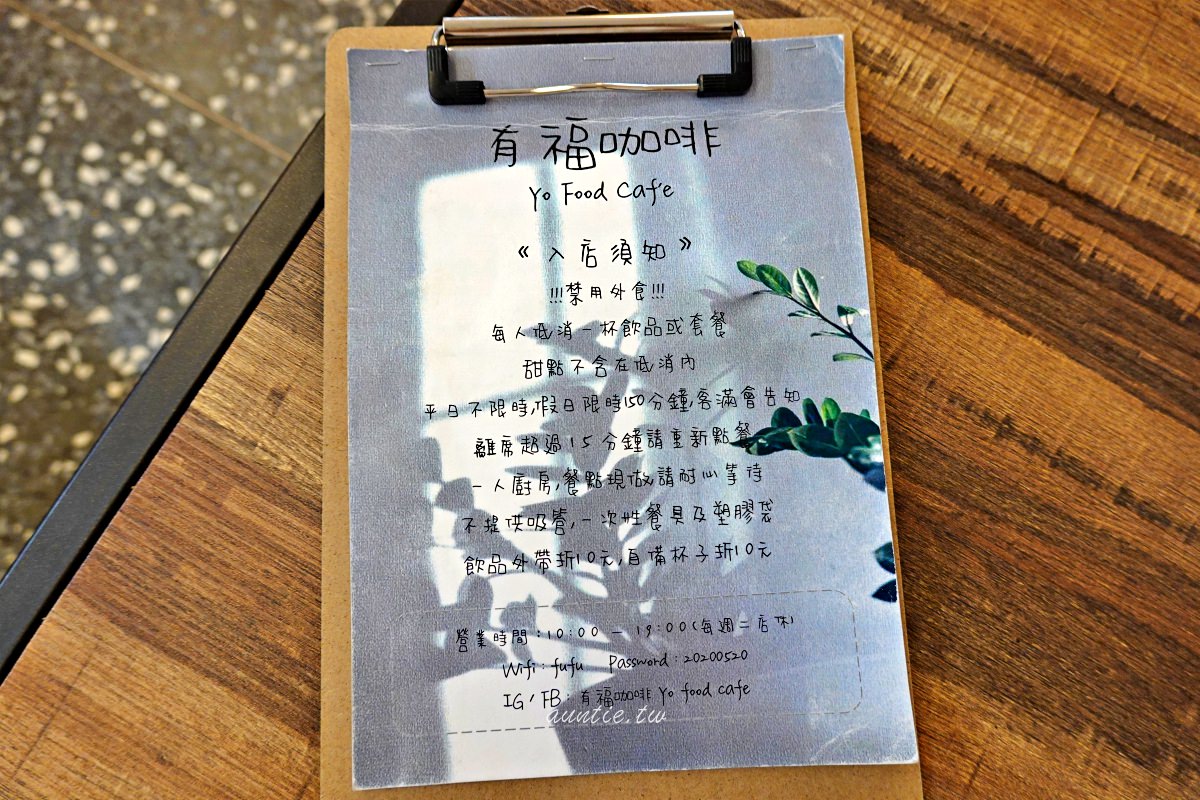 有福咖啡
Yo Food Cafe
《入店須知》
!!!禁用外食!!!
每人低消一杯飲品或套餐
甜點不含在低消內
平日不限時,假日限時150分鐘,客滿會告知
離席超過15分鐘請重新點餐
一人廚房,餐點現做,請耐心等待
不提供吸管,一次性餐具及塑膠袋
飲品外帶折10元,自備杯子折10元
營業時間:10:00-19:00(每週二店休)
Wifi:fufu Password:20200520
IG/FB:有福咖啡 Yo food cafe
auntie.tw